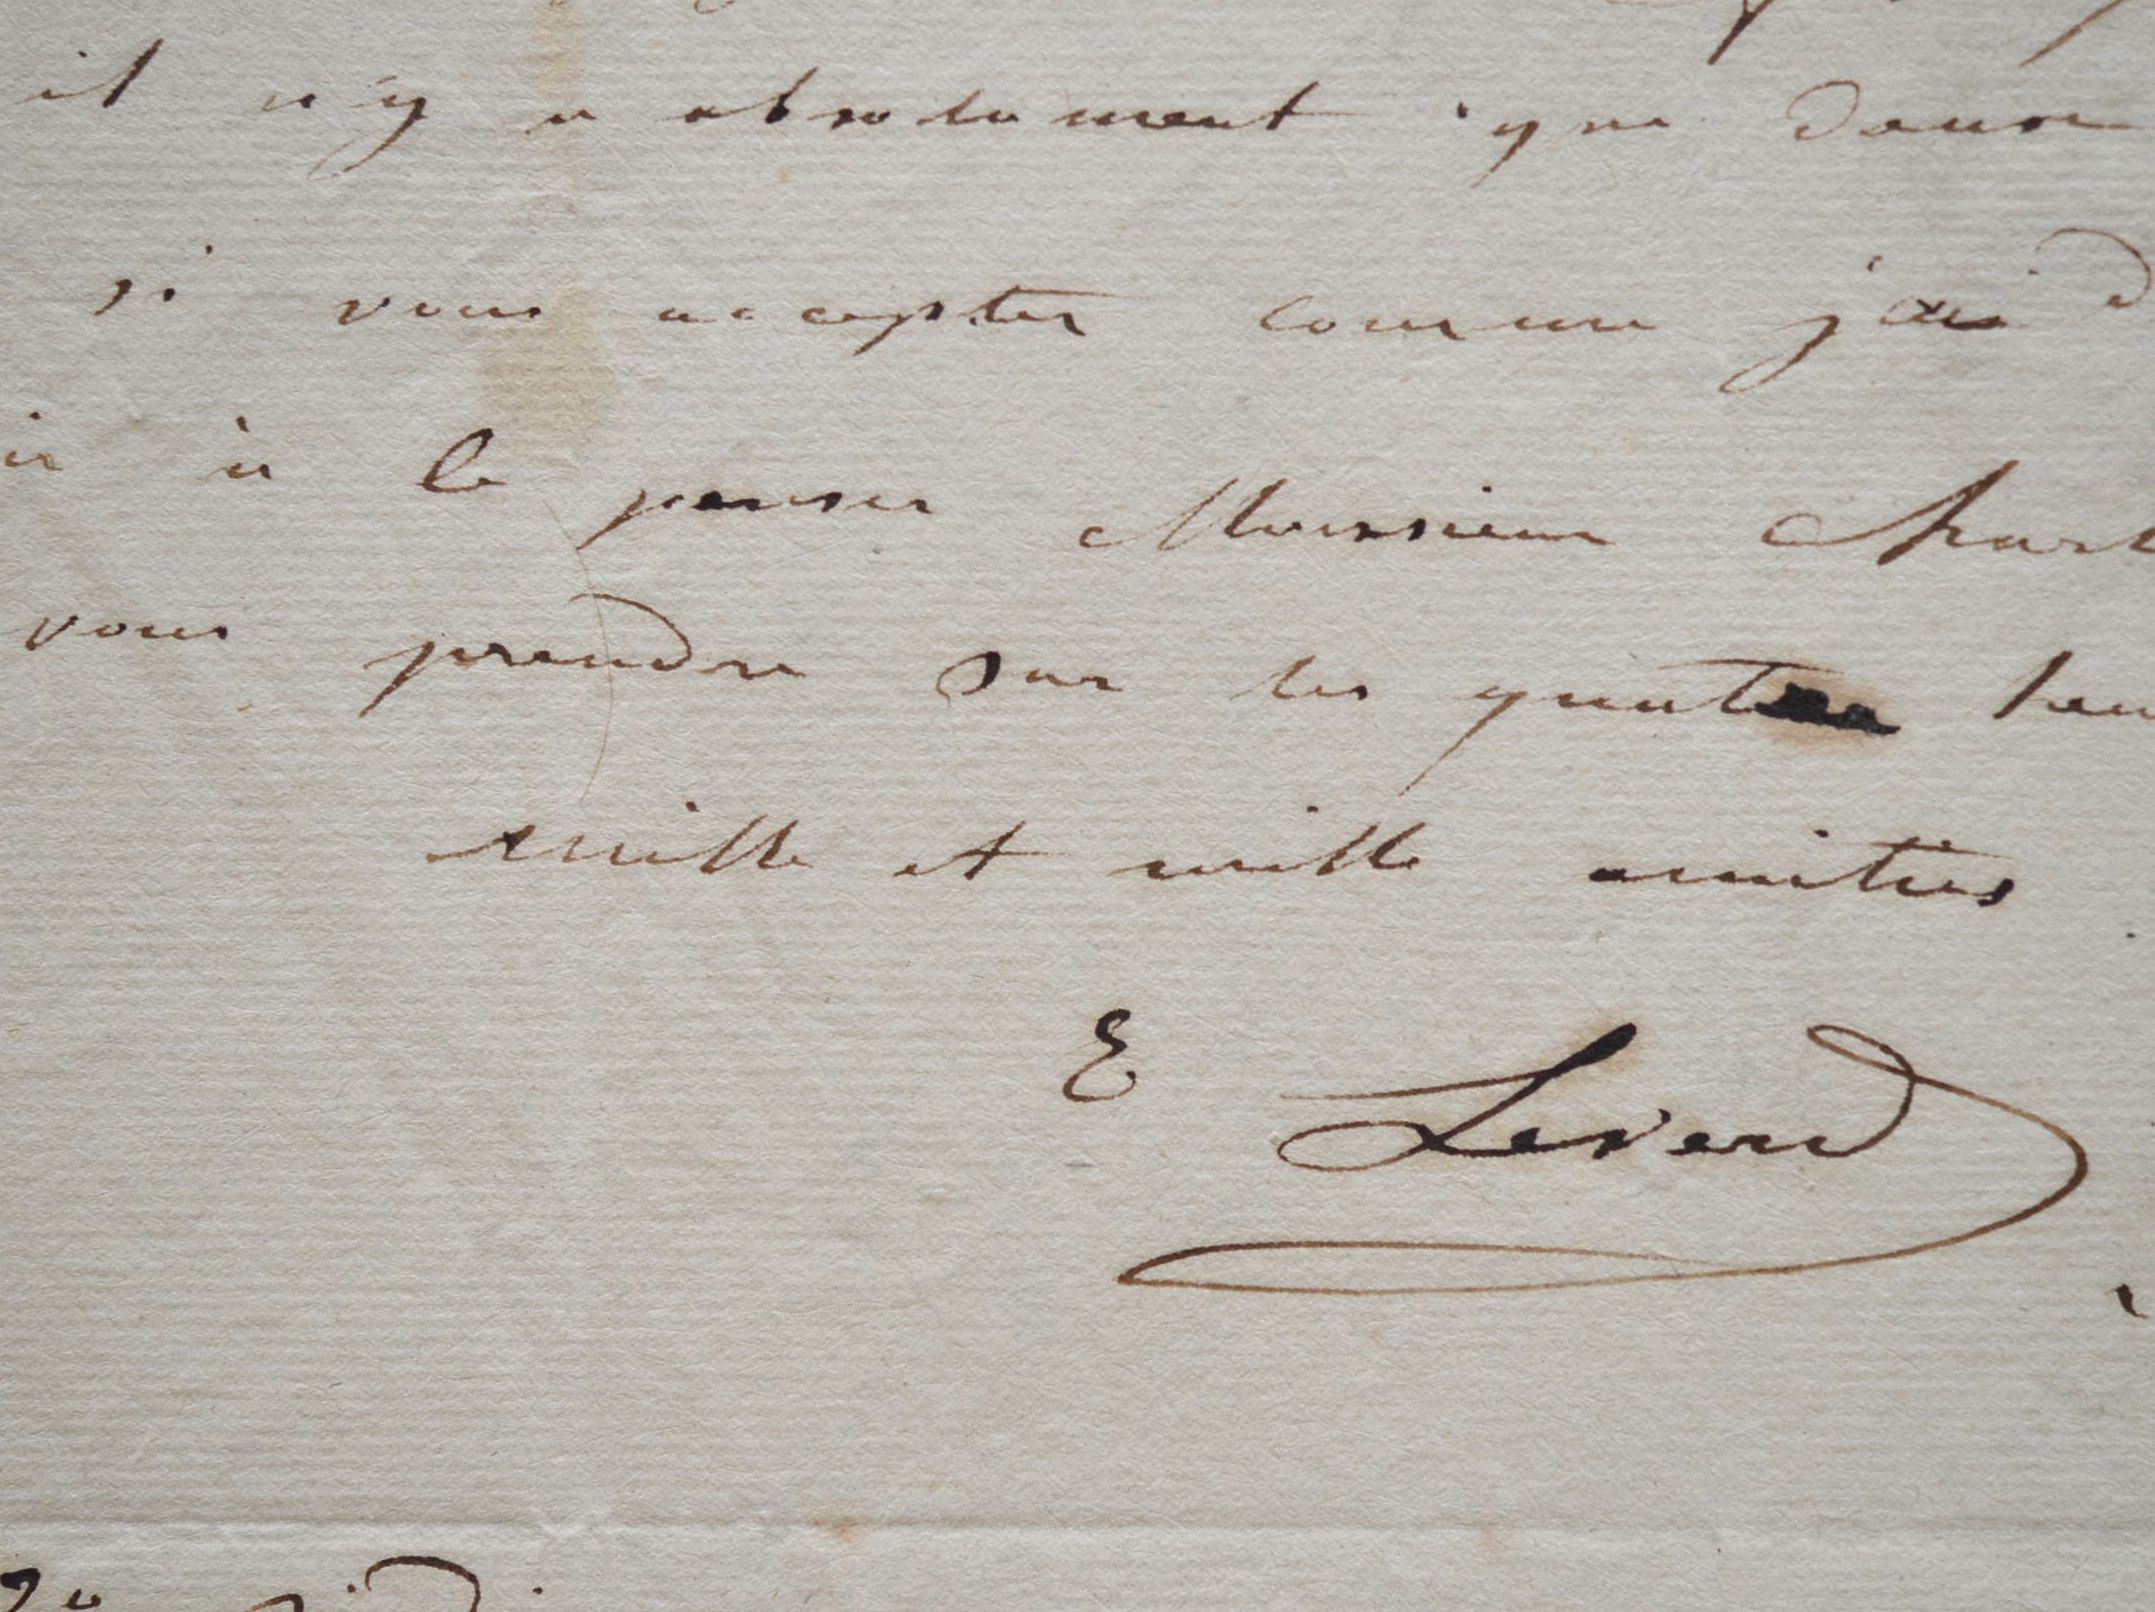 il n'y a absolument que deux
si vous accepter comme j'ai d
ir à le penser Monsieur Charl
vous prendre sur les quatre heu
mille et mille amitiés
E Leverd